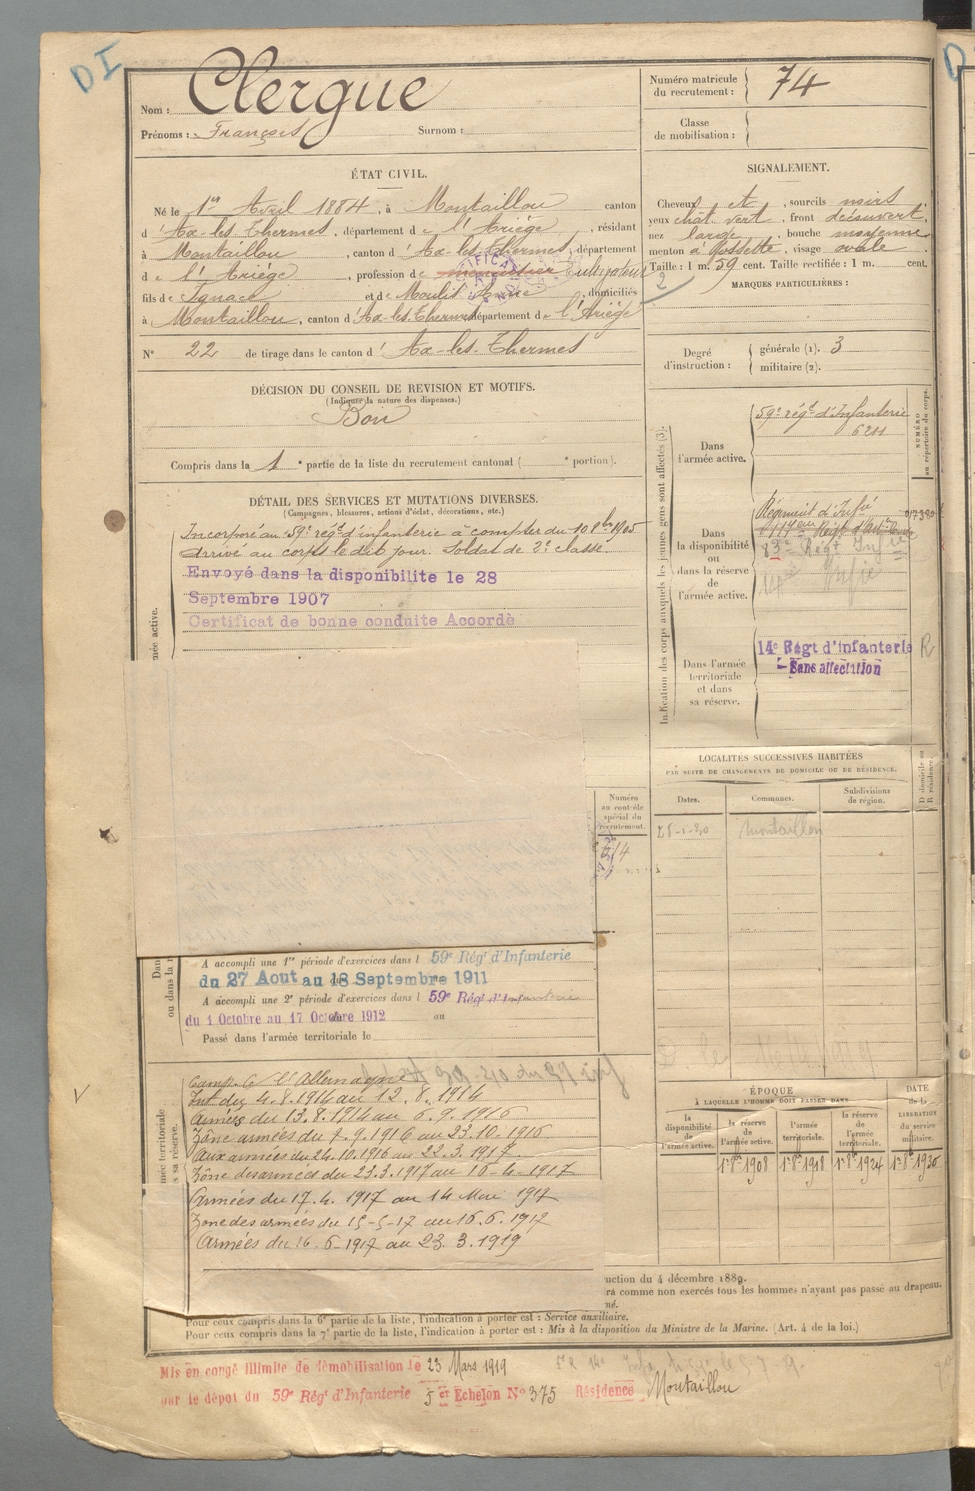 DI
Nom : Clergue
Prénoms : François Surnom :
Numéro matricule du recrutement : 74
Classe de mobilisation :
ÉTAT CIVIL.
Né le 1er Avril 1884, à Montaillou canton
d'Ax-les-Thermes, département de l'Ariège, résidant
à Montaillou, canton d'Ax-les-Thermes, département
de l'Ariège, profession de menuisier Cultivateur
fils de Ignace et de Moulis Anne, domiciliés
à Montaillou, canton d'Ax-les-Thermes département de l'Ariège
N° 22 de tirage dans le canton d'Ax-les-Thermes
SIGNALEMENT.
Cheveux et, sourcils noirs,
yeux chât. vert, front découvert,
nez large, bouche moyenne
menton à fossette, visage ovale
Taille : 1 m. 59 cent. Taille rectifiée : 1 m. cent.
2
MARQUES PARTICULIÈRES :
Degré d'instruction : générale (1). 3
militaire (2).
DÉCISION DU CONSEIL DE REVISION ET MOTIFS.
(Indiquer la nature des dispenses.)
Bon
Compris dans la 1e partie de la liste du recrutement cantonal ( e portion).
DÉTAIL DES SERVICES ET MUTATIONS DIVERSES.
(Campagnes, blessures, actions d'éclat, décorations, etc.)
Incorporé au 59e régt d'infanterie à compter du 10 8bre 1905
Arrivé au corps le dit jour. Soldat de 2e classe.
Envoyé dans la disponibilite le 28
Septembre 1907
Certificat de bonne conduite Accordè
Indication des corps auxquels les jeunes gens sont affectés (3).
NUMÉRO au répertoire du corps.
Dans l'armée active.
59e régt d'Infanterie
6211
Dans la disponibilité ou dans la réserve de l'armée active.
Régiment d'Infie
83e Régt Inf
Dans l'armée territoriale et dans sa réserve.
14e Régt d'infanterie R
Sans affectation
LOCALITÉS SUCCESSIVES HABITÉES
PAR SUITE DE CHANGEMENTS DE DOMICILE OU DE RÉSIDENCE.
Dates. Communes. Subdivisions de région. D domicile ou R résidence.
Montaillou
Numéro au contrôle spécial du recrutement.
A accompli une 1re période d'exercices dans l 59e Rég' d'Infanterie
du 27 Aout au 18 Septembre 1911
A accompli une 2e période d'exercices dans l 59e Régt d'Infanterie
du 1 Octobre au 17 Octobre 1912 au
Passé dans l'armée territoriale le
Camp. C l'Allemagne
Int du 4.8.1914 au 12.8.1914
Armées du 13.8.1914 au 6.9.1916
Zône armées du 7.9.1916 au 23.10.1916
Aux armées du 24.10.1916 au 22.3.1917
Zône des armées du 23.3.1917 au 16-4-1917
Armées du 17.4.1917 au 14 Mai 1917
Zone des armées du 15-5-17 au 15.6.1917
Armées du 16.6.1917 au 23.3.1919
ÉPOQUE
À LAQUELLE L'HOMME DOIT PASSER DANS
la disponibilité de l'armée active. la réserve de l'armée active. l'armée territoriale. la réserve de l'armée territoriale.
DATE de la LIBÉRATION du service militaire.
1er 8bre 1908 1er 8bre 1918 1er 8bre 1924 1er 8bre 1930
uction du 4 décembre 1889.
ra comme non exercés tous les hommes n'ayant pas passé au drapeau.
né.
Pour ceux compris dans la 6e partie de la liste, l'indication à porter est : Service auxiliaire.
Pour ceux compris dans la 7e partie de la liste, l'indication à porter est : Mis à la disposition du Ministre de la Marine. (Art. 4 de la loi.)
Mis en congé illimité de démobilisation le 23 Mars 1919
par le dépôt du 59e Rég' d'Infanterie 5e Echelon N° 375 Résidence Montaillou